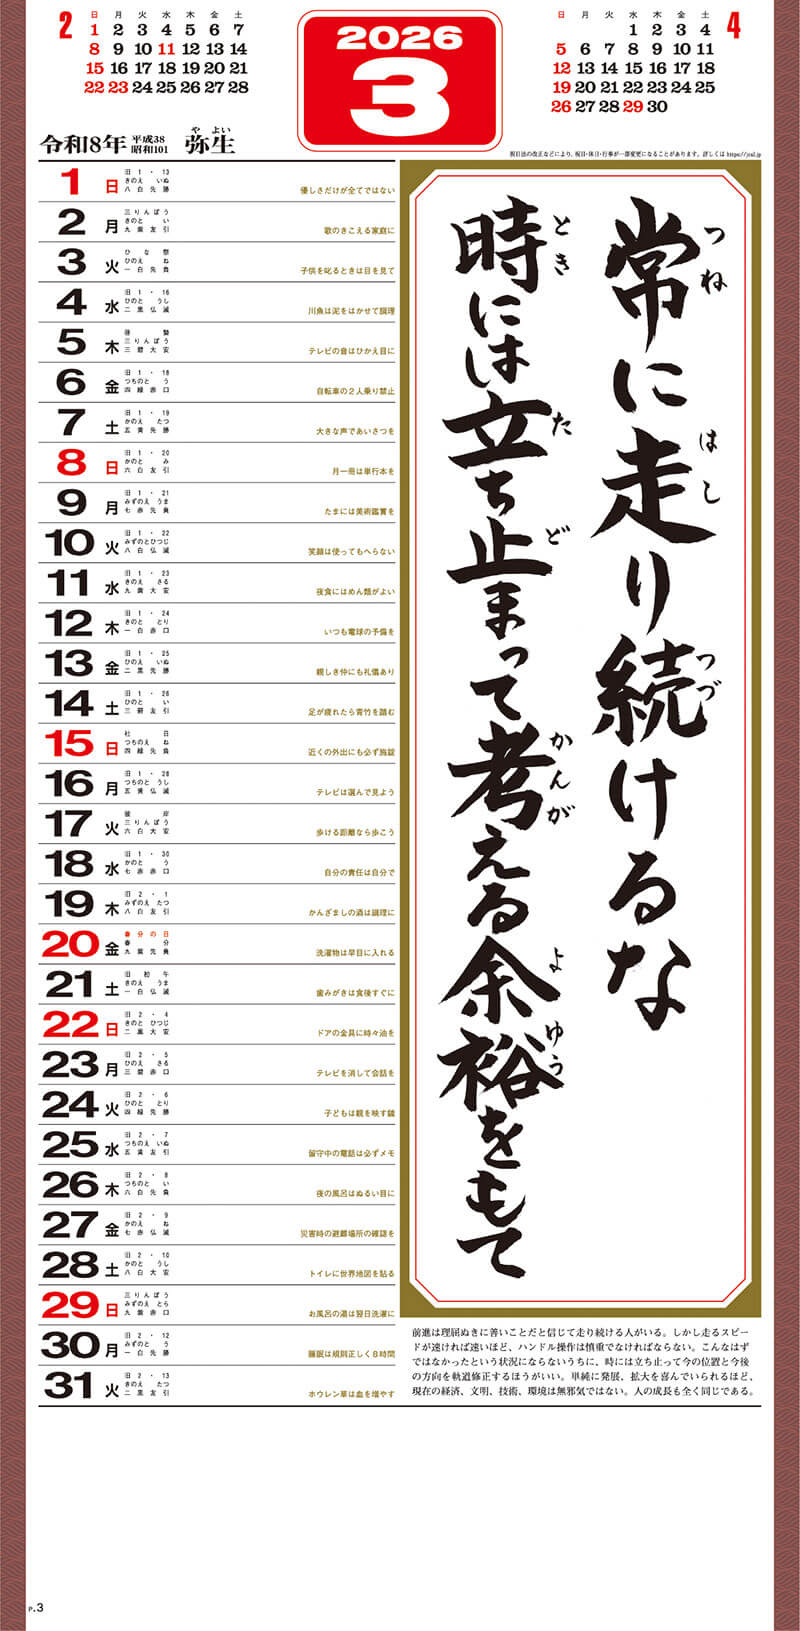 2
日 月 火 水 木 金 土
1 2 3 4 5 6 7
8 9 10 11 12 13 14
15 16 17 18 19 20 21
22 23 24 25 26 27 28
2026
3
4
日 月 火 水 木 金 土
1 2 3 4
5 6 7 8 9 10 11
12 13 14 15 16 17 18
19 20 21 22 23 24 25
26 27 28 29 30
令和8年 平成38 昭和101 弥生
や よい
祝日法の改正などにより、祝日・休日・行事が一部変更になることがあります。詳しくは https://jcal.jp
1 日 旧 1・13 きのえ いぬ 八白先勝 優しさだけが全てではない
2 月 三りんぼう きのと い 九紫友引 歌のきこえる家庭に
3 火 ひな祭 ひのえ ね 一白先負 子供を叱るときは目を見て
4 水 旧 1・16 ひのと うし 二黒仏滅 川魚は泥をはかせて調理
5 木 啓蟄 三りんぼう 三碧大安 テレビの音はひかえ目に
6 金 旧 1・18 つちのと う 四緑赤口 自転車の2人乗り禁止
7 土 旧 1・19 かのえ たつ 五黄先勝 大きな声であいさつを
8 日 旧 1・20 かのと み 六白友引 月一冊は単行本を
9 月 旧 1・21 みずのえ うま 七赤先負 たまには美術鑑賞を
10 火 旧 1・22 みずのとひつじ 八白仏滅 笑顔は使ってもへらない
11 水 旧 1・23 きのえ さる 九紫大安 夜食にはめん類がよい
12 木 旧 1・24 きのと とり 一白赤口 いつも電球の予備を
13 金 旧 1・25 ひのえ いぬ 二黒先勝 親しき仲にも礼儀あり
14 土 旧 1・26 ひのと い 三碧友引 足が疲れたら青竹を踏む
15 日 社日 つちのえ ね 四緑先負 近くの外出にも必ず施錠
16 月 旧 1・28 つちのと うし 五黄仏滅 テレビは選んで見よう
17 火 彼岸 三りんぼう 六白大安 歩ける距離なら歩こう
18 水 旧 1・30 かのと う 七赤赤口 自分の責任は自分で
19 木 旧 2・1 みずのえ たつ 八白友引 かんざましの酒は調理に
20 金 春分の日 春分 九紫先負 洗濯物は早目に入れる
21 土 旧初午 きのえ うま 一白仏滅 歯みがきは食後すぐに
22 日 旧 2・4 きのと ひつじ 二黒大安 ドアの金具に時々油を
23 月 旧 2・5 ひのえ さる 三碧赤口 テレビを消して会話を
24 火 旧 2・6 ひのと とり 四緑先勝 子どもは親を映す鏡
25 水 旧 2・7 つちのえ いぬ 五黄友引 留守中の電話は必ずメモ
26 木 旧 2・8 つちのと い 六白先負 夜の風呂はぬるい目に
27 金 旧 2・9 かのえ ね 七赤仏滅 災害時の避難場所の確認を
28 土 旧 2・10 かのと うし 八白大安 トイレに世界地図を貼る
29 日 三りんぼう みずのえ とら 九紫赤口 お風呂の湯は翌日洗濯に
30 月 旧 2・12 みずのと う 一白先勝 睡眠は規則正しく8時間
31 火 旧 2・13 きのえ たつ 二黒友引 ホウレン草は血を増やす
常に走り続けるな
つね はし つづ
時には立ち止まって考える余裕をもて
とき た ど かんが よ ゆう
前進は理屈ぬきに善いことだと信じて走り続ける人がいる。しかし走るスピー
ドが速ければ速いほど、ハンドル操作は慎重でなければならない。こんなはず
ではなかったという状況にならないうちに、時には立ち止って今の位置と今後
の方向を軌道修正するほうがいい。単純に発展、拡大を喜んでいられるほど、
現在の経済、文明、技術、環境は無邪気ではない。人の成長も全く同じである。
P.3